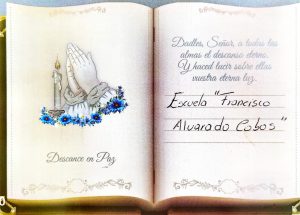 Descance en Paz
Dadles, Señor, a todas las
almas el descanso eterno.
Y haced lucir sobre ellas
vuestra eterna luz.
Escuela "Francisco
Alvarado Cobos"